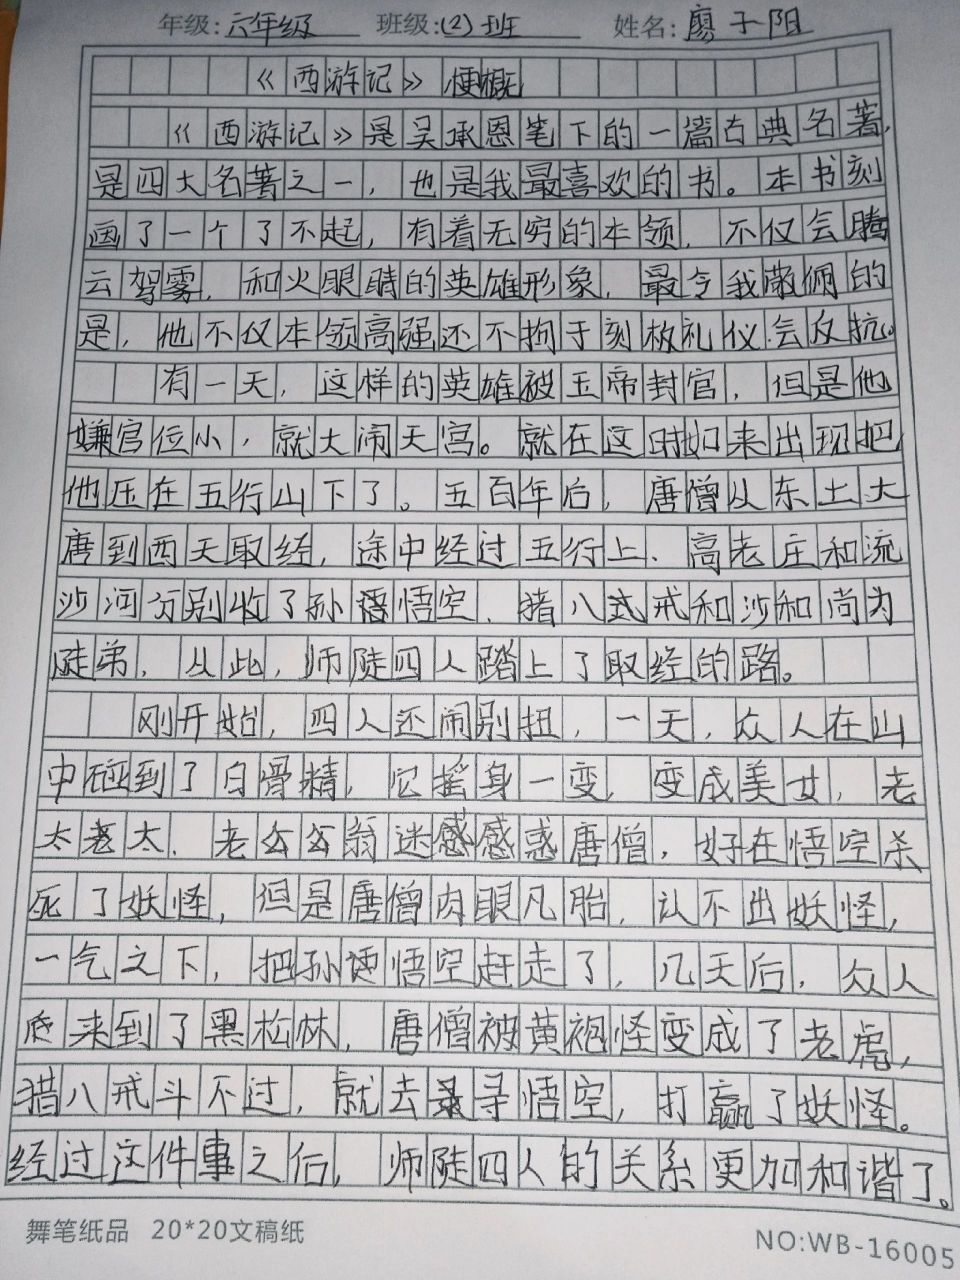 年级: 六年级 班级: (2)班 姓名: 廖子阳
《西游记》梗概
《西游记》是吴承恩笔下的一篇古典名著,
是四大名著之一，也是我最喜欢的书。本书刻
画了一个了不起，有着无穷的本领，不仅会腾
云驾雾，和火眼睛的英雄形象，最令我敬佩的
是，他不仅本领高强还不拘于刻板礼仪会反抗。
有一天，这样的英雄被玉帝封官，但是他
嫌官位小，就大闹天宫。就在这时如来出现把
他压在五行山下了。五百年后，唐僧从东土大
唐到西天取经，途中经过五行上、高老庄和流
沙河分别收了孙悟空、猪八式戒和沙和尚为
徒弟，从此，师徒四人踏上了取经的路。
刚开始，四人还闹别扭，一天，众人在山
中碰到了白骨精，它摇身一变，变成美女，老
太老太、老公公翁迷感感惑唐僧，好在悟空杀
死了妖怪，但是唐僧肉眼凡胎，认不出妖怪，
一气之下，把孙悟空赶走了，几天后，众人
来到了黑松林，唐僧被黄袍怪变成了老虎，
猪八戒斗不过，就去寻悟空，打赢了妖怪。
经过这件事之后，师徒四人的关系更加和谐了。
舞笔纸品 20*20文稿纸 NO:WB-16005